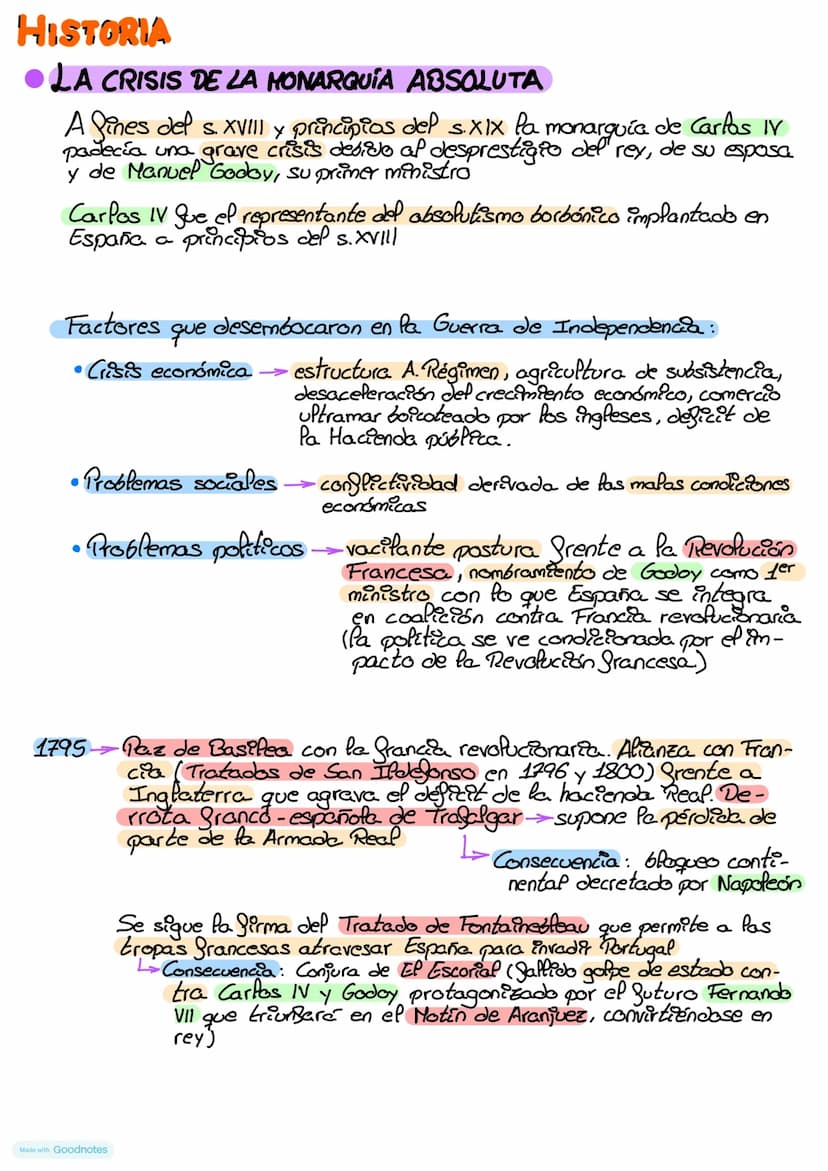 HISTORIA
LA CRISIS DE LA MONARQUÍA ABSOLUTA
A fines del s. XVIII y principios del s. XIX la monarquía de Carlos IV
padecía una grave crisis debido al desprestigio del rey, de su esposa
y de Manuel Godoy, su primer ministro
Carlos IV fue el representante del absolutismo borbónico implantado en
España a principios del s. XVIII
Factores que desembocaron en la Guerra de Independencia:
• Crisis económica → estructura A. Régimen, agricultura de subsistencia,
desaceleración del crecimiento económico, comercio
ultramar boicoteado por los ingleses, déficit de
la Hacienda pública.
• Problemas sociales → conflictividad derivada de las malas condiciones
económicas
• Problemas políticos → vacilante postura frente a la Revolución
Francesa, nombramiento de Godoy como 1er
ministro con lo que España se integra
en coalición contra Francia revolucionaria
(la política se ve condicionada por el im-
pacto de la Revolución francesa)
1795 → Paz de Basilea con la francia revolucionaria. Alianza con Fran-
cia (Tratados de San Ildelfonso en 1796 y 1800) frente a
Inglaterra que agrava el déficit de la hacienda Real. De-
rrota franco-española de Trafalgar → supone la pérdida de
parte de la Armada Real
↳ Consecuencia: bloqueo conti-
nental decretado por Napoleón
Se sigue la firma del Tratado de Fontainebleau que permite a las
tropas francesas atravesar España para invadir Portugal
↳ Consecuencia: Conjura de El Escorial (fallido golpe de estado con-
tra Carlos IV y Godoy protagonizado por el futuro Fernando
VII que triunfará en el Motín de Aranjuez, convirtiéndose en
rey)
Made with Goodnotes